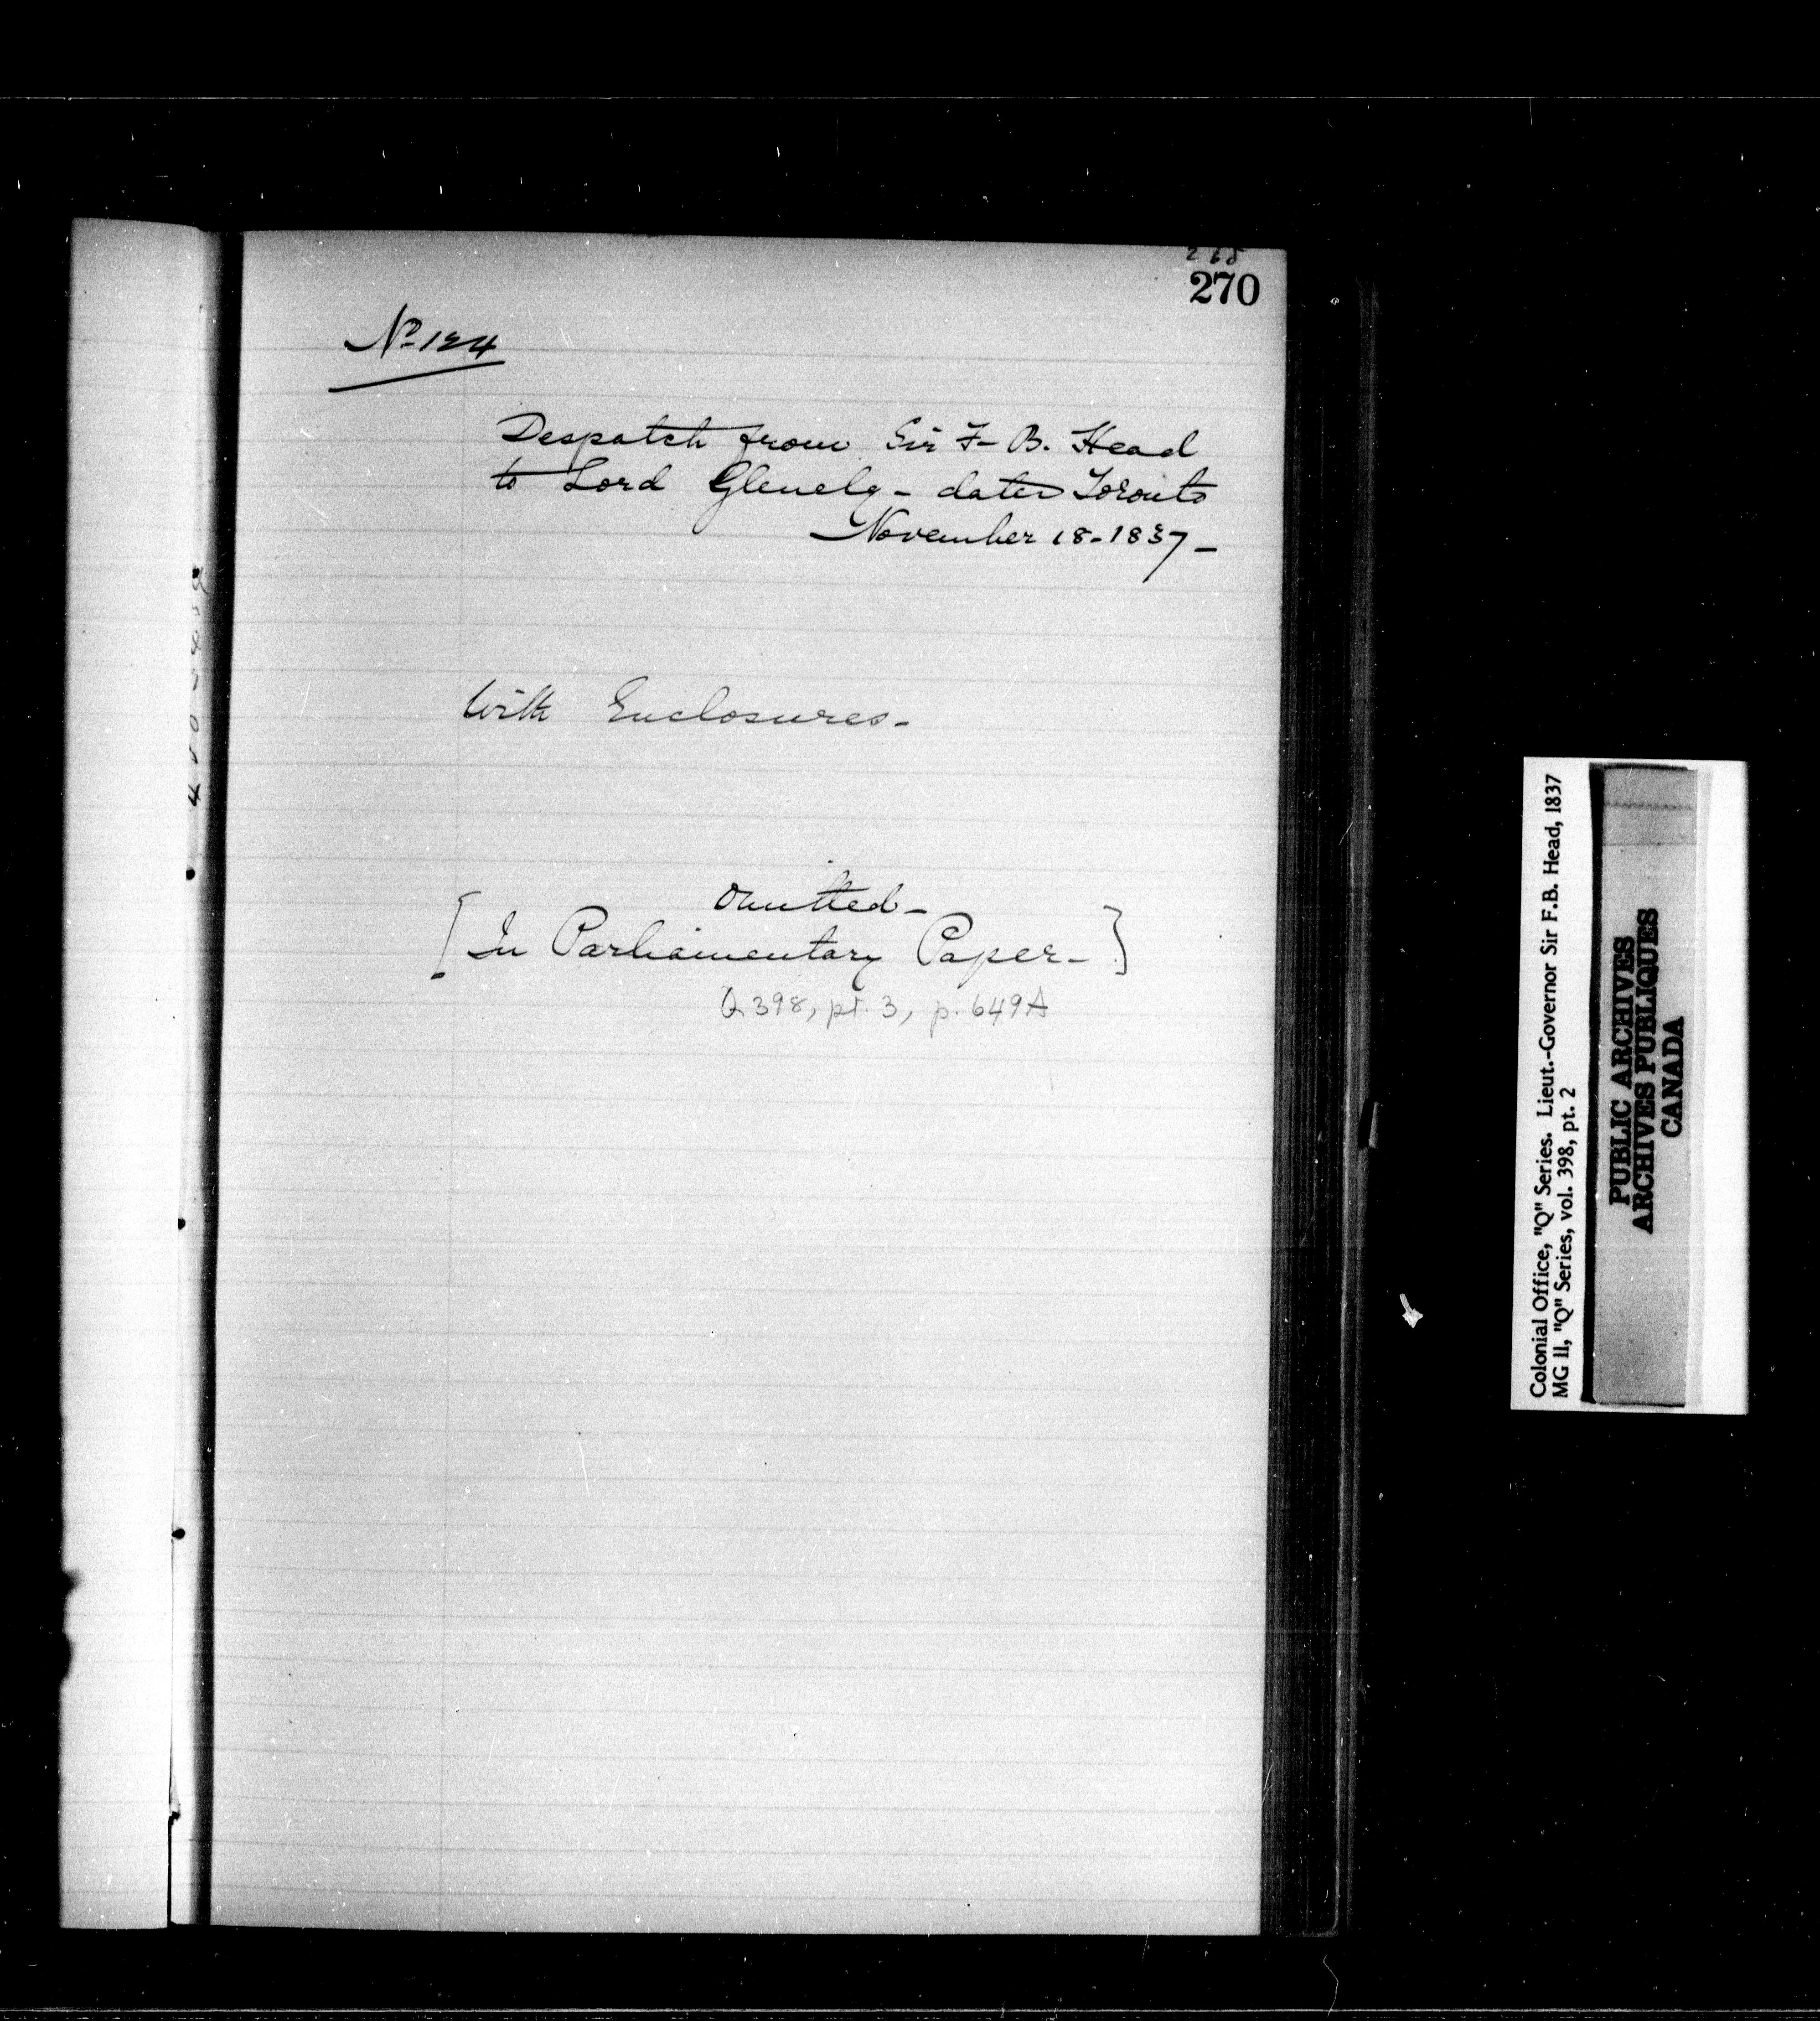 265
270
Nº 124
Despatch from Sir F- B. Head
to Lord Glenelg - dated Toronto
November 18 - 1837 -
With Enclosures -
Omitted -
[In Parliamentary Paper -]
Q 398, pt. 3, p. 649A
Colonial Office, "Q" Series. Lieut.-Governor Sir F.B. Head, 1837
MG 11, "Q" Series, vol. 398, pt. 2
PUBLIC ARCHIVES
ARCHIVES PUBLIQUES
CANADA